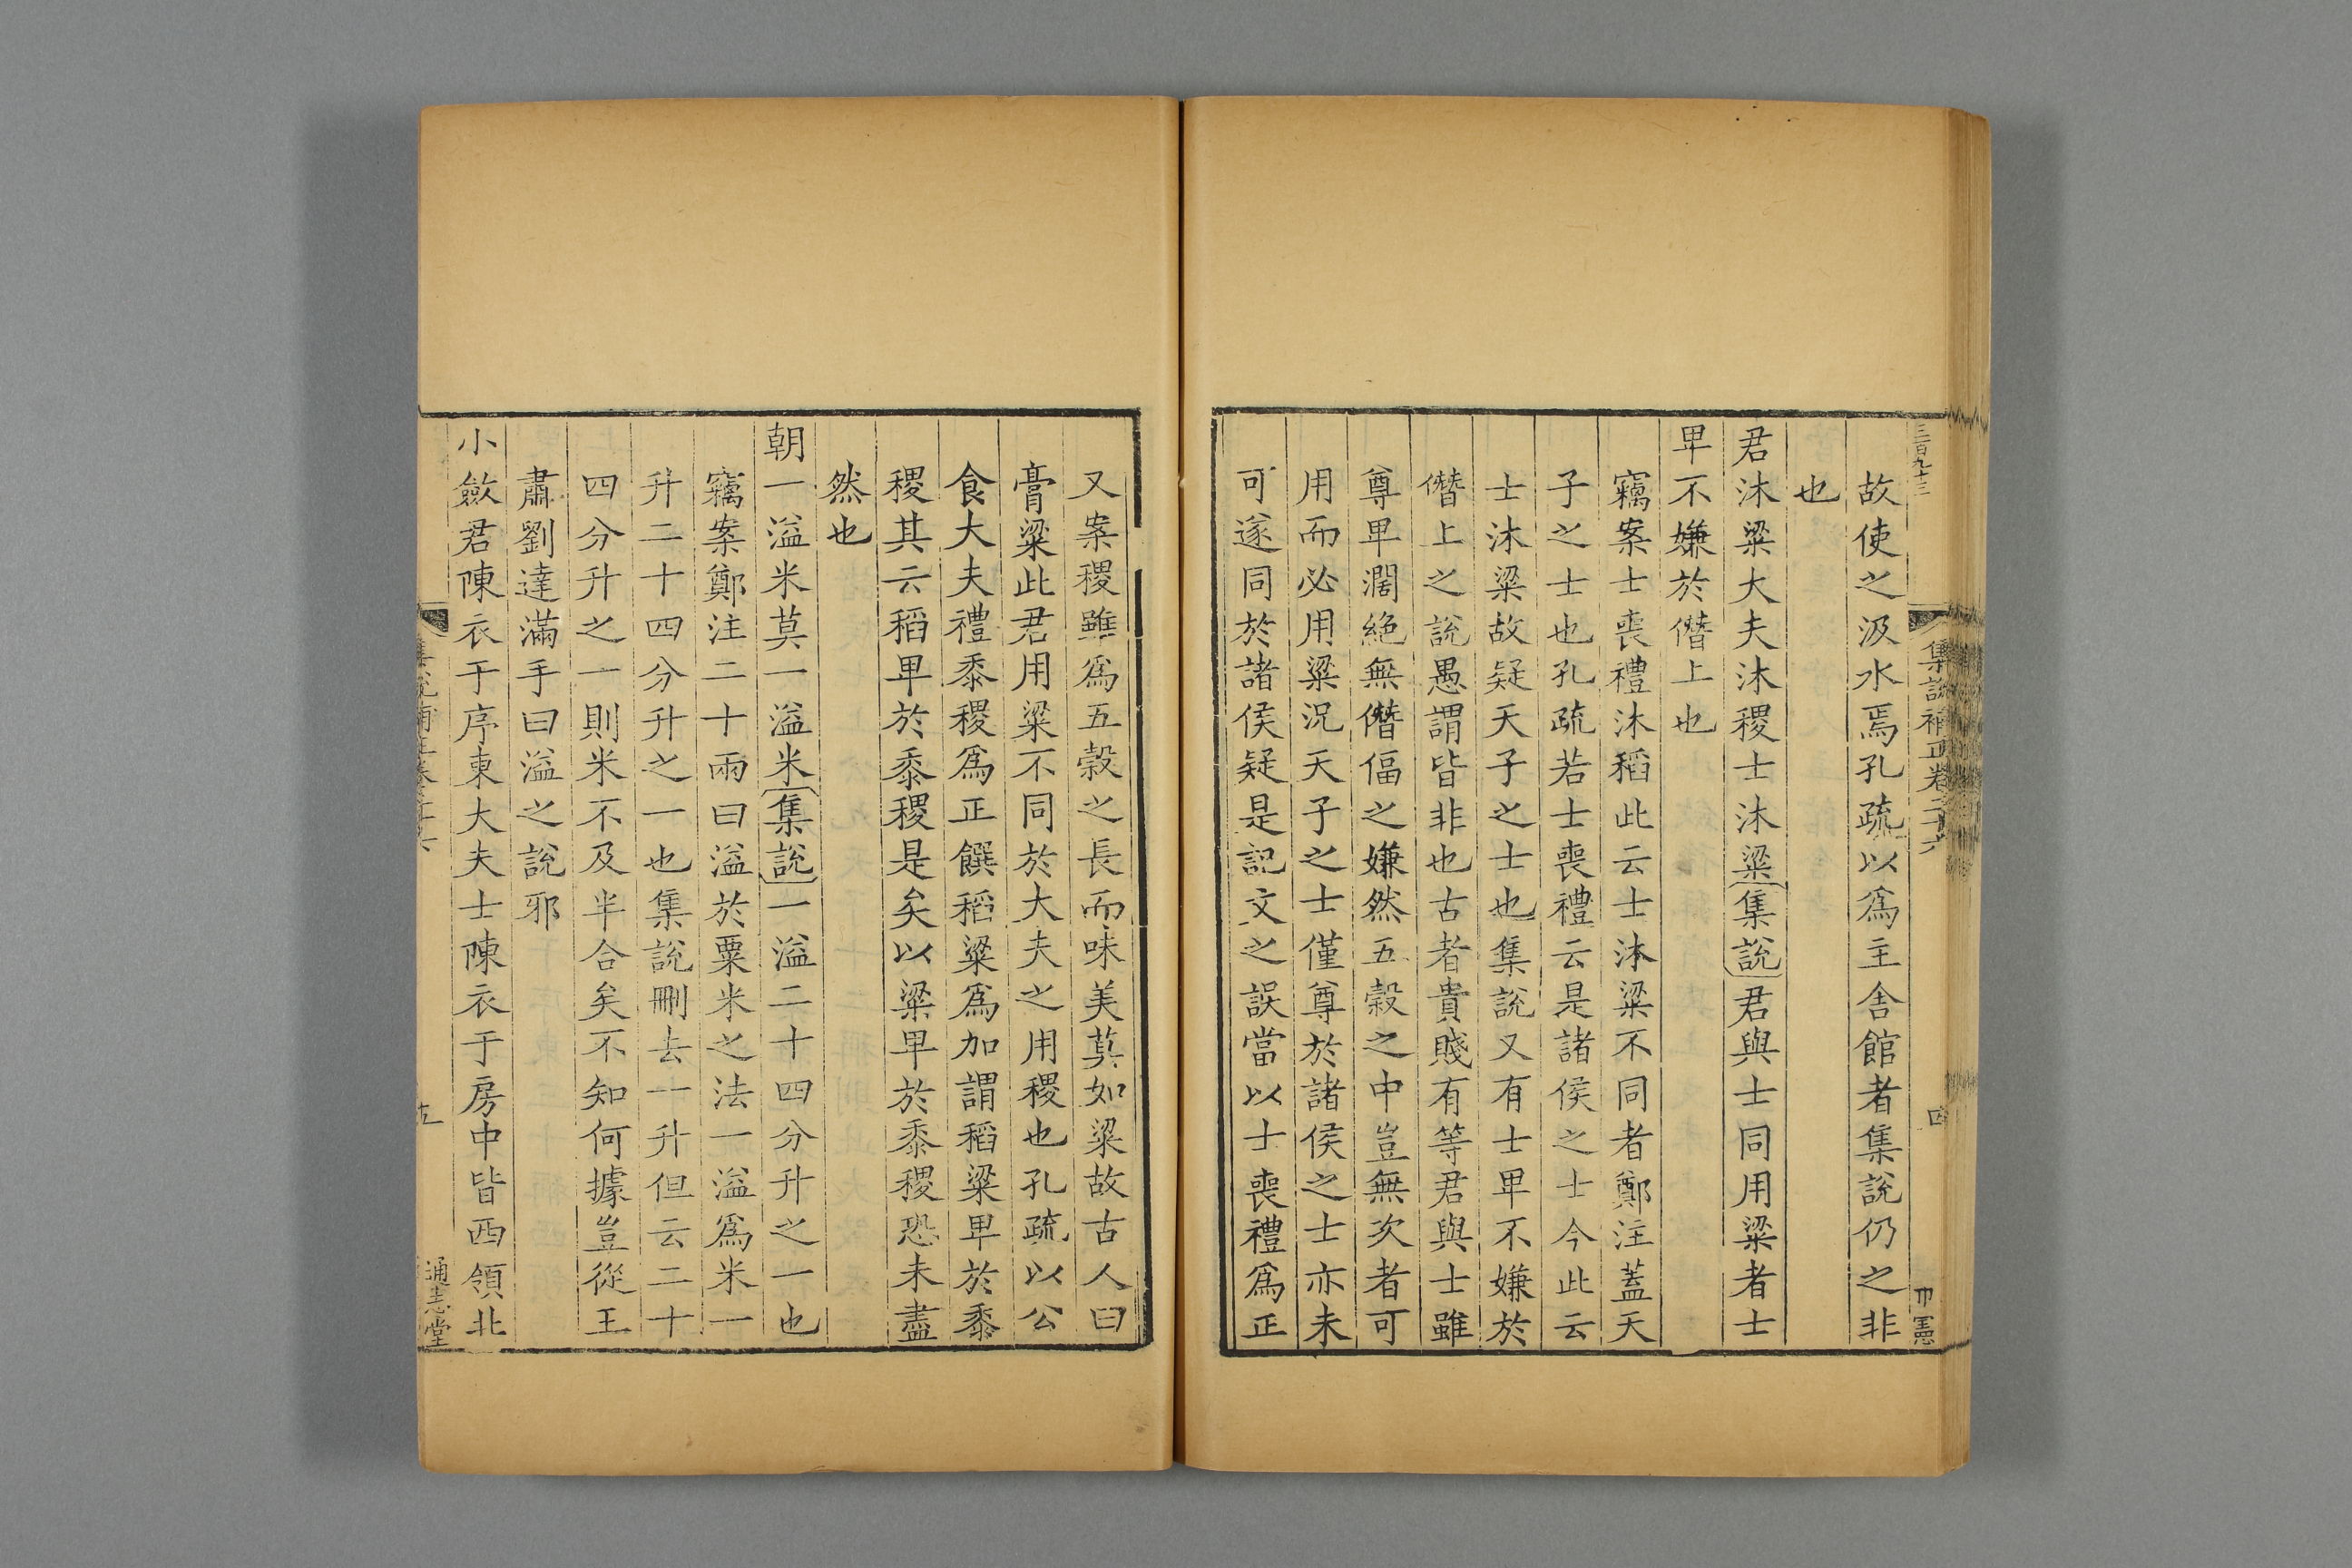 三百九十三
集説補正卷二十六
四
故使之汲水焉孔疏以爲主舍館者集說仍之非
也
君沐粱大夫沐稷士沐粱集說君與士同用粱者士
卑不嫌於僭上也
竊案士喪禮沐稻此云士沐粱不同者鄭注蓋天
子之士也孔疏若士喪禮云是諸侯之士今此云
士沐粱故疑天子之士也集說又有士卑不嫌於
僭上之說愚謂皆非也古者貴賤有等君與士雖
尊卑濶絶無僭偪之嫌然五榖之中豈無次者可
用而必用粱況天子之士僅尊於諸侯之士亦未
可遂同於諸侯疑是記文之誤當以士喪禮爲正
又案稷雖爲五榖之長而味美莫如粱故古人曰
膏粱此君用粱不同於大夫之用稷也孔疏以公
食大夫禮黍稷爲正饌稻粱爲加謂稻粱卑於黍
稷其云稻卑於黍稷是矣以粱卑於黍稷恐未盡
然也
朝一溢米莫一溢米集說一溢二十四分升之一也
竊案鄭注二十兩曰溢於粟米之法一溢爲米一
升二十四分升之一也集說刪去一升但云二十
四分升之一則米不及半合矣不知何據豈從王
肅劉逵滿手曰溢之說邪
小斂君陳衣于序東大夫士陳衣于房中皆西領北
五
通志堂